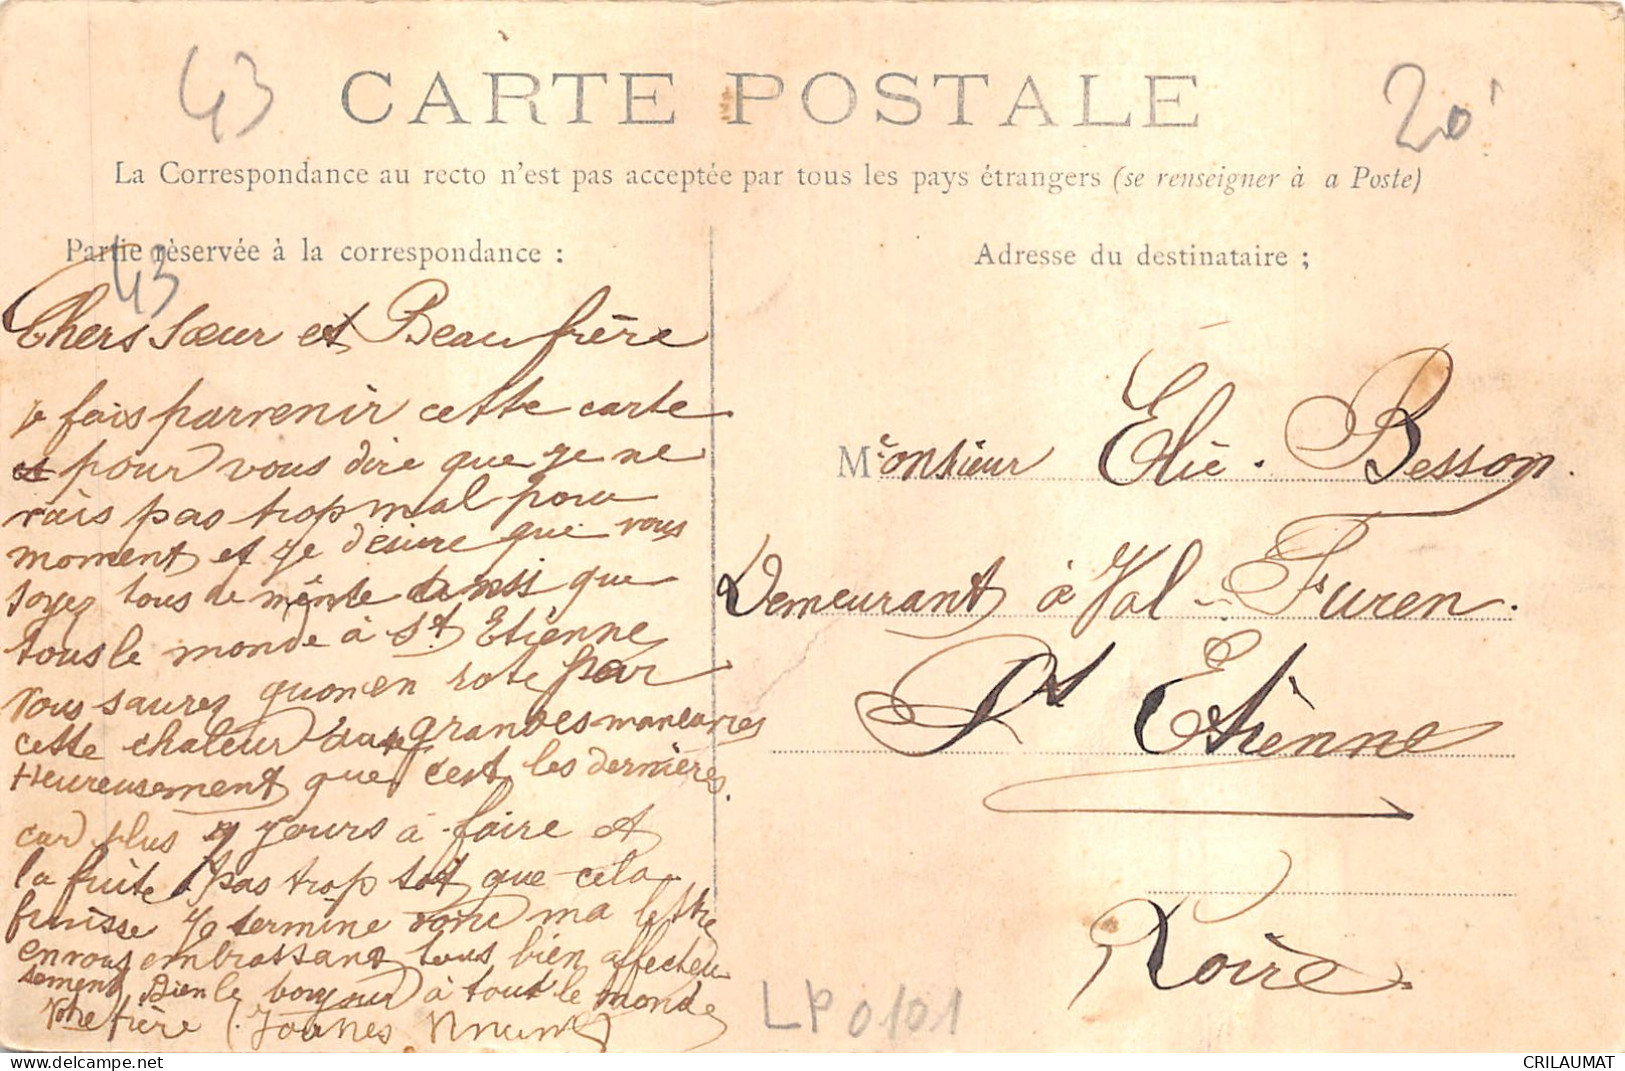 43
CARTE POSTALE
20
La Correspondance au recto n'est pas acceptée par tous les pays étrangers (se renseigner à a Poste)
Partie rèservée à la correspondance :
43
Chers Sœur et Beau frère
Je fais parvenir cette carte
pour vous dire que je ne
vais pas trop mal pour
moment et je désire que vous
soyez tous de même ainsi que
tous le monde à St Etienne
Vous saurez quon en rote par
cette chaleur aux grandes manœuvres
Heureusement que c'est les dernières.
car plus 7 jours à faire et
la fuite pas trop tot que cela
fuisse Je termine donc ma lettre
en vous embrassant tous bien affecteu
sement Bien le bonjour à tout le monde
Votre frère Joannes
Adresse du destinataire ;
Monsieur Elie Besson.
Demeurant à Val-Furen.
St Etienne
Loire.
LP0101
CRILAUMAT